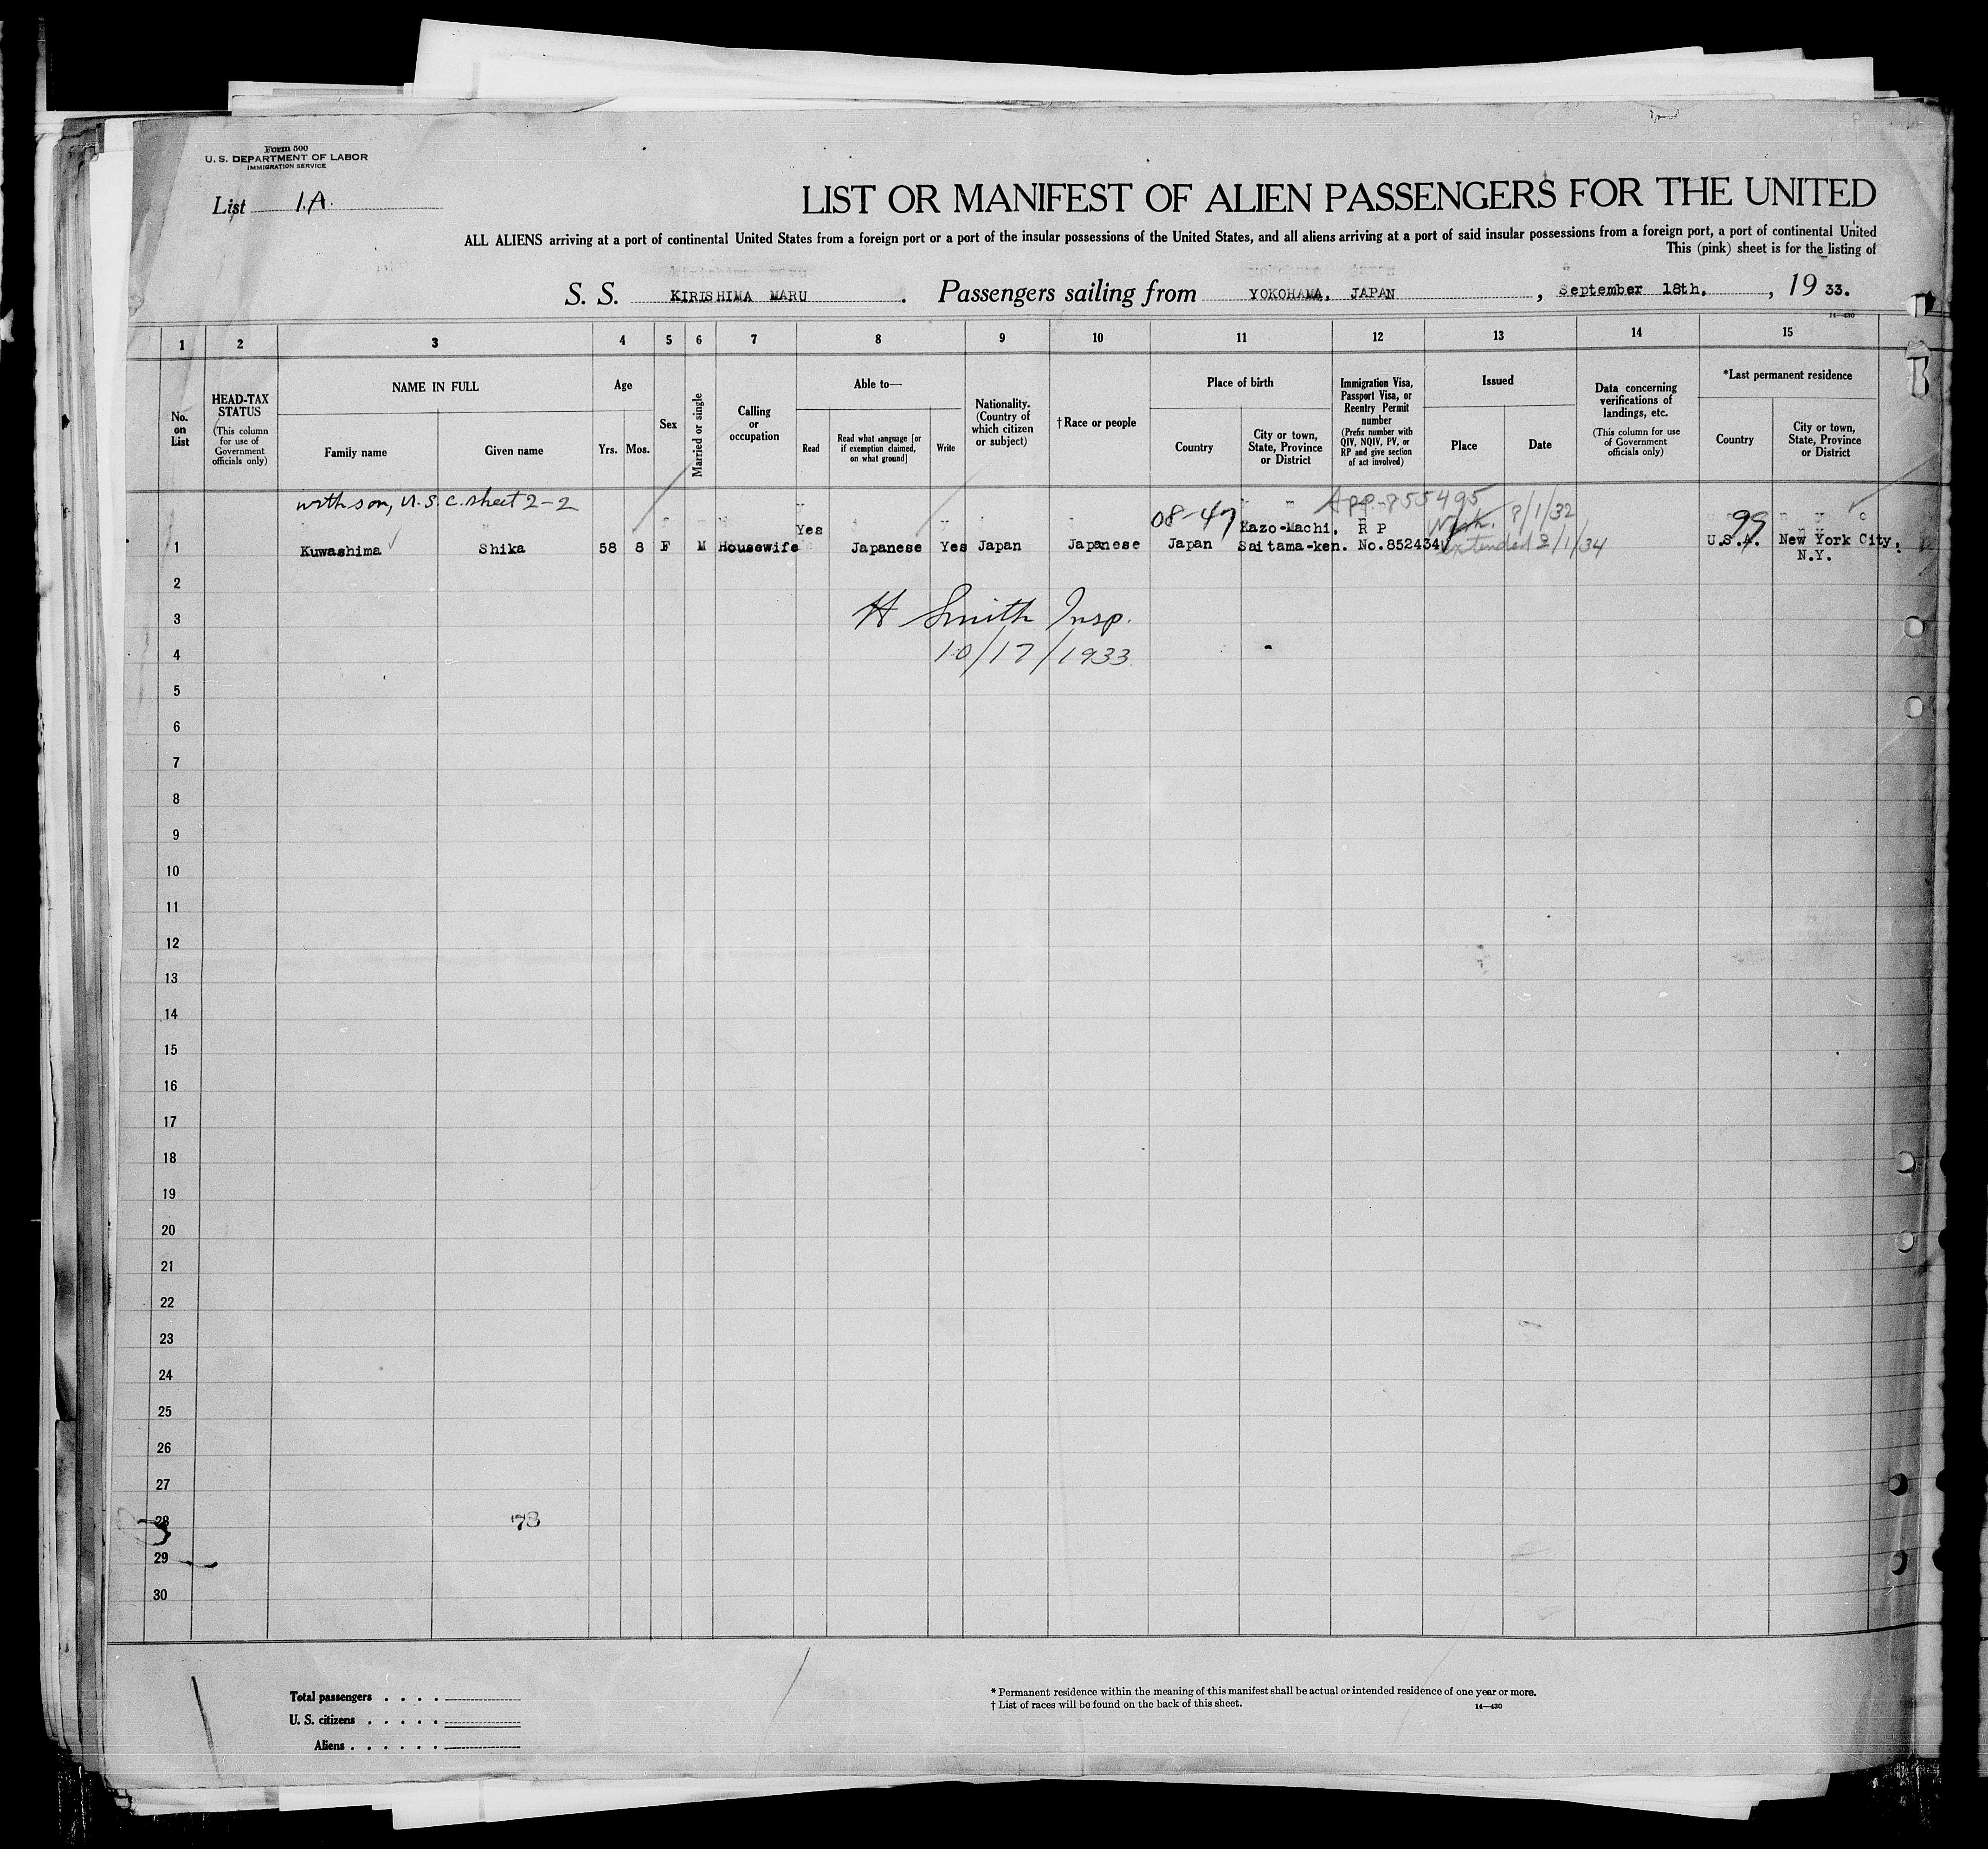 Form 500
U. S. DEPARTMENT OF LABOR
IMMIGRATION SERVICE
List 1.A.
LIST OR MANIFEST OF ALIEN PASSENGERS FOR THE UNITED
ALL ALIENS arriving at a port of continental United States from a foreign port or a port of the insular possessions of the United States, and all aliens arriving at a port of said insular possessions from a foreign port, a port of continental United
This (pink) sheet is for the listing of
S. S. KIRISHIMA MARU . Passengers sailing from YOKOHAMA, JAPAN , September 18th. , 19 33.
14-430
1 2 3 4 5 6 7 8 9 10 11 12 13 14 15
No. on List
HEAD-TAX STATUS
(This column for use of Government officials only)
NAME IN FULL
Family name
Given name
Age
Yrs.
Mos.
Sex
Married or single
Calling or occupation
Able to—
Read
Read what language [or if exemption claimed, on what ground]
Write
Nationality. (Country of which citizen or subject)
† Race or people
Place of birth
Country
City or town, State, Province or District
Immigration Visa, Passport Visa, or Reentry Permit number
(Prefix number with QIV, NQIV, PV, or RP and give section of act involved)
Issued
Place
Date
Data concerning verifications of landings, etc.
(This column for use of Government officials only)
*Last permanent residence
Country
City or town, State, Province or District
with son, U.S.C. sheet 2-2
App-855495
08-47
Wash. 8/1/32
99
Yes Kazo-Machi, R P
1 Kuwashima Shika 58 8 F M Housewife Japanese Yes Japan Japanese Japan Saitama-ken. No.852434 extended 2/1/34 U.S.A. New York City,
N.Y.
2
H Smith Insp.
3
10/17/1933
4
5
6
7
8
9
10
11
12
13
14
15
16
17
18
19
20
21
22
23
24
25
26
27
28
78
29
30
Total passengers . . . .
U. S. citizens . . . . .
Aliens . . . . . .
* Permanent residence within the meaning of this manifest shall be actual or intended residence of one year or more.
† List of races will be found on the back of this sheet.
14-430